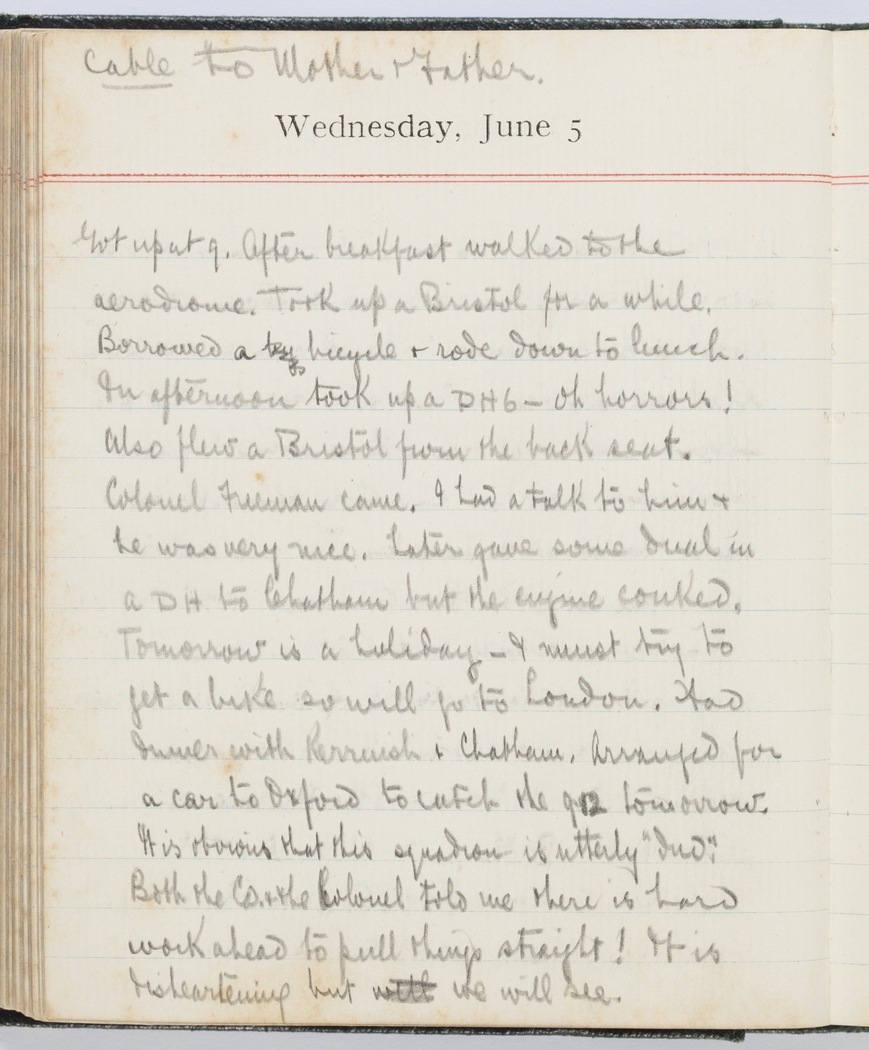 Cable to Mother + Father.
Wednesday, June 5
Got up at 9. After breakfast walked to the
aerodrome. Took up a Bristol for a while.
Borrowed a bicycle + rode down to lunch.
In afternoon took up a DH6 – oh horrors!
Also flew a Bristol from the back seat.
Colonel Freeman came. I had a talk to him +
he was very nice. Later gave some dual in
a DH to Chatham but the engine conked.
Tomorrow is a holiday – I must try to
get a bike so will go to London. Had
dinner with Kerruish + Chatham. Arranged for
a car to Oxford to catch the 912 tomorrow.
It is obvious that this squadron is utterly "dud".
Both the C.O. + the Colonel told me there is hard
work ahead to pull things straight! It is
disheartening but we will see.